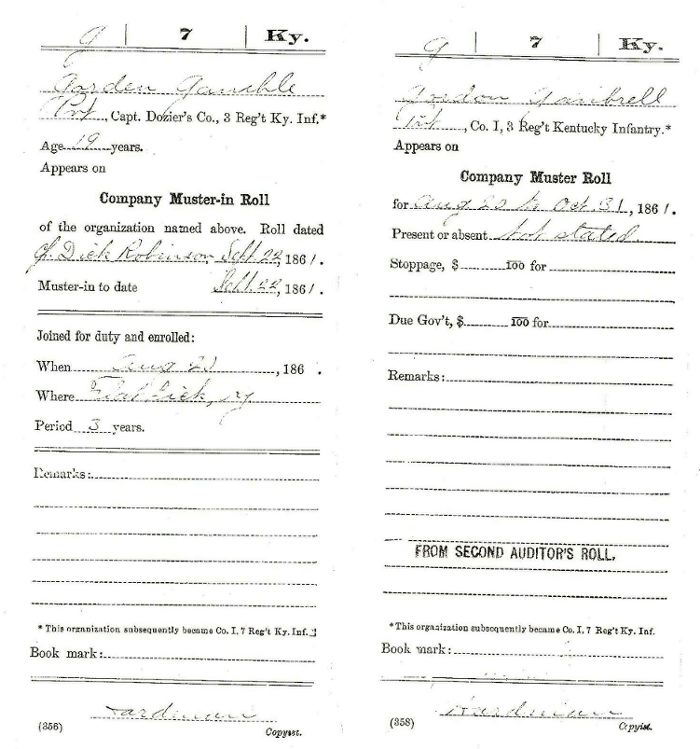 G 7 Ky.
Garden Gamble
Pvt, Capt. Dozier's Co., 3 Reg't Ky. Inf.*
Age 19 years.
Appears on
Company Muster-in Roll
of the organization named above. Roll dated
Dick Robinson Sept. 22, 1861.
Muster-in to date Sept. 22, 1861.
Joined for duty and enrolled:
When Aug, 186 .
Where Flat Lick, Ky
Period 3 years.
Remarks:
* This organization subsequently became Co. I, 7 Reg't Ky. Inf.
Book mark:
Hardman
(356) Copyist.
G 7 Ky.
Gordon Gambrell
Pvt, Co. I, 3 Reg't Kentucky Infantry.*
Appears on
Company Muster Roll
for Aug to Oct. 31, 1861.
Present or absent Not stated
Stoppage, $ 100 for
Due Gov't, $ 100 for
Remarks:
FROM SECOND AUDITOR'S ROLL.
* This organization subsequently became Co. I, 7 Reg't Ky. Inf.
Book mark:
Hardman
(358) Copyist.